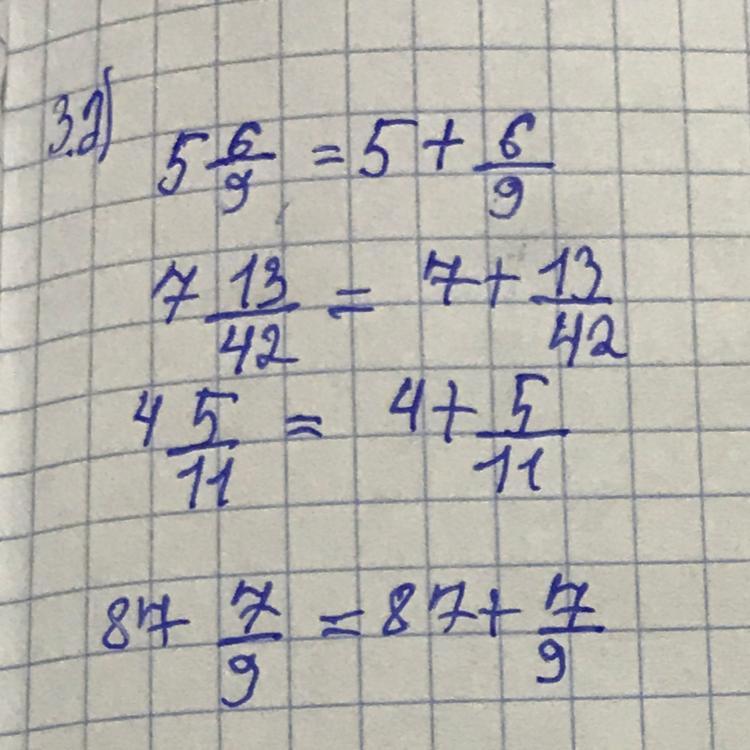 3.2) 5 6/9 = 5 + 6/9
7 13/42 = 7 + 13/42
4 5/11 = 4 + 5/11
87 7/9 = 87 + 7/9